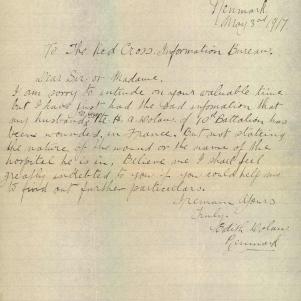 Renmark
May 3rd 1917
To The Red Cross Information Bureau.
Dear Sir or Madame,
I am sorry to intrude on your valuable time
but I have just had the bad infomation that
my husband Pte H a Wolane of 10th Battalion has
been wounded, in France. But not stating
the nature of the wound or the name of the
hospital he is in, Believe me I shall feel
greatly indebted to you if you could help me
to find out further particulars.
I remain Yours
Truly
Edith Wolane
Renmark